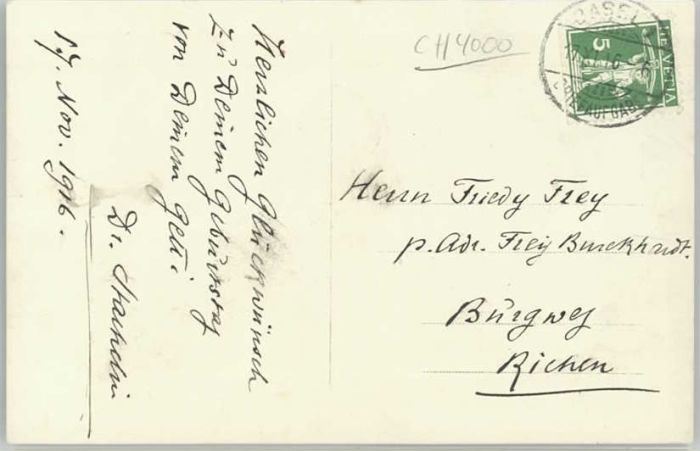 Herzlichen Glückwünsch
zu Deinem Geburtstag
von Deinem Getti
Dr. Staehelin
17. Nov. 1916.
CH4000
BASEL
BRIEFAUFGABE
5
HELVETIA
Herrn Friedy Frey
p. Adr. Frey Burckhardt.
Burgweg
Riehen